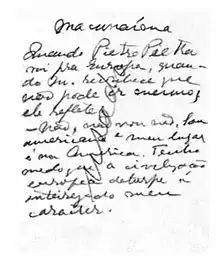 Macunaíma
Quando Pietro Pietra
vai pra Europa, quan-
do M. reconhece que
não pode ir mesmo,
ele reflete:
— Não, não vou não. Sou
americano e meu lugar
é na America. Tenho
medo que a civilização
européa deturpe a
inteireza do meu
caracter.